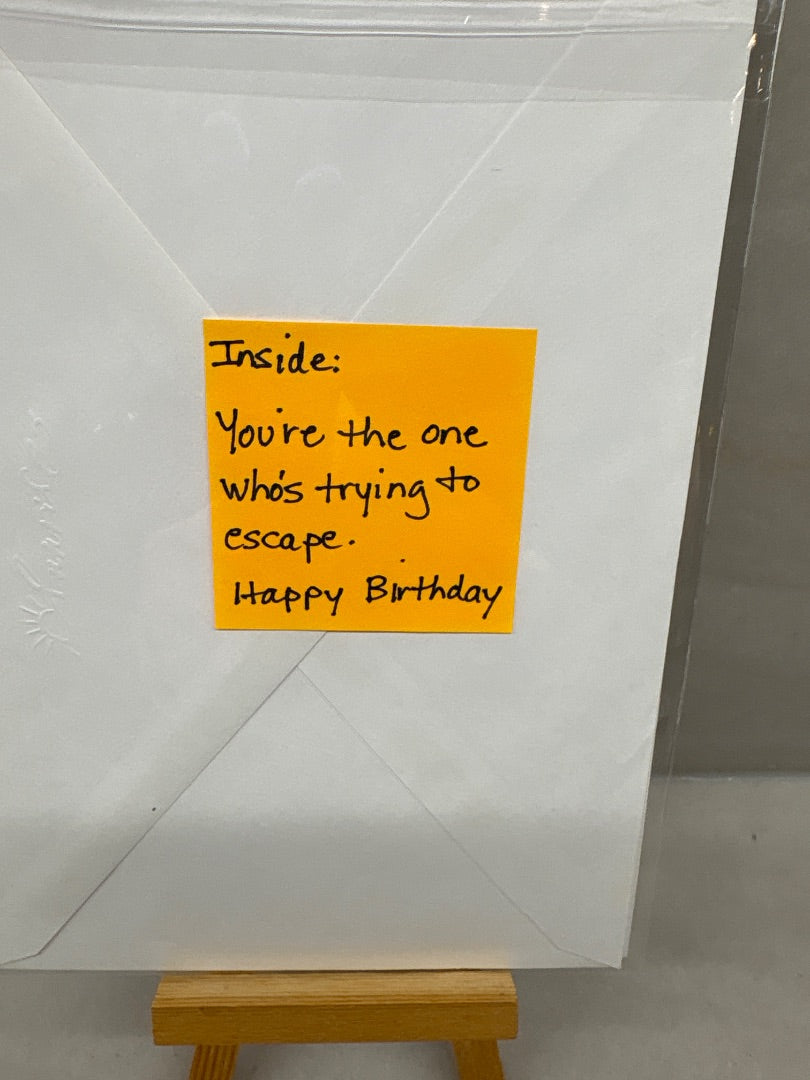 Inside:
You're the one
who's trying to
escape.
Happy Birthday